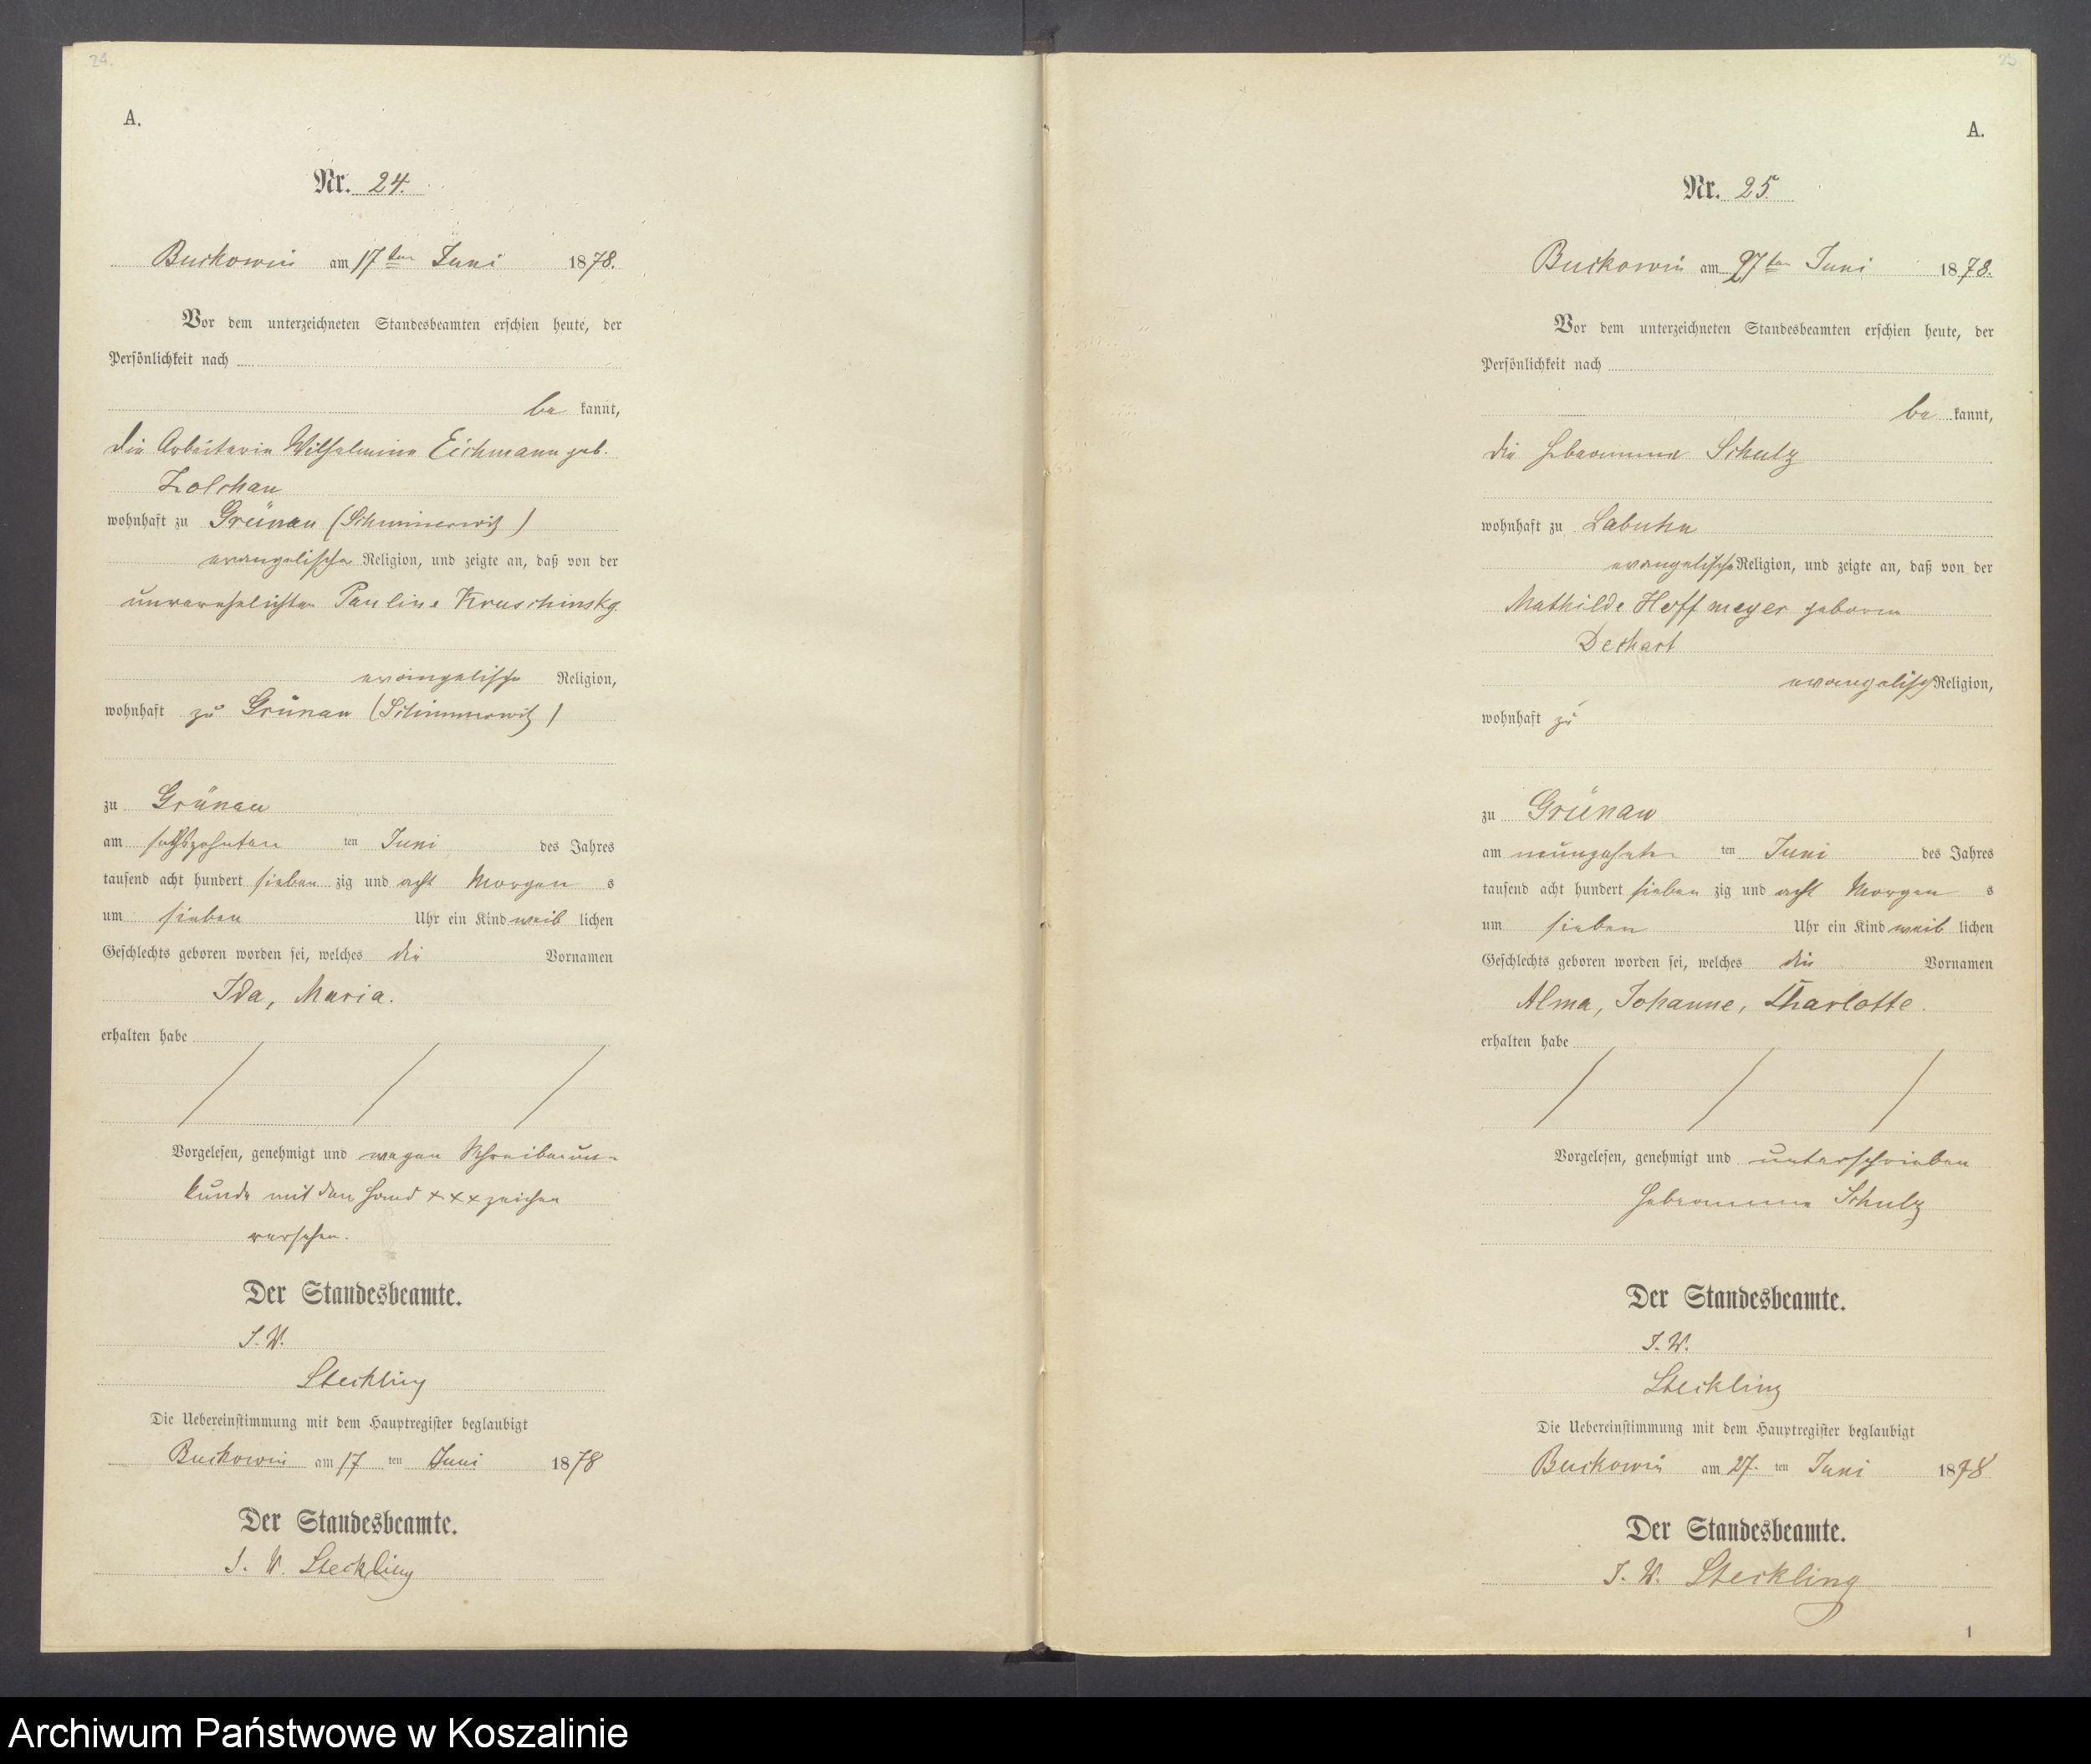 24.
A.
Nr. 24.
Buckowin am 17ten Juni 1878.
Vor dem unterzeichneten Standesbeamten erschien heute, der
Persönlichkeit nach
be kannt,
die Arbeiterin Wilhelmine Eichmann geb.
Zolchau
wohnhaft zu Grünau (Schimmerwitz)
evangelische Religion, und zeigte an, daß von der
unverehelichten Pauline Kruschinsky.
evangelische Religion,
wohnhaft zu Grünau (Schimmerwitz)
zu Grünau
am sechszehnten ten Juni des Jahres
tausend acht hundert sieben zig und acht Morgen s
um sieben Uhr ein Kind weib lichen
Geschlechts geboren worden sei, welches die Vornamen
Ida, Maria.
erhalten habe
Vorgelesen, genehmigt und wegen Schreibenun-
kunde mit den Hand xxx zeichen
versehen.
Der Standesbeamte.
I. V.
Steckling
Die Uebereinstimmung mit dem Hauptregister beglaubigt
Buckowin am 17 ten Juni 1878
Der Standesbeamte.
I. V. Steckling
25
A.
Nr. 25.
Buckowin am 27ten Juni 1878.
Vor dem unterzeichneten Standesbeamten erschien heute, der
Persönlichkeit nach
be kannt,
die Hebeamme Schulz
wohnhaft zu Labuhn
evangelische Religion, und zeigte an, daß von der
Mathilde Hoffmeyer geboren
Dechart
evangelisch Religion,
wohnhaft zu
zu Grünau
am neunzehnten ten Juni des Jahres
tausend acht hundert sieben zig und acht Morgen s
um sieben Uhr ein Kind weib lichen
Geschlechts geboren worden sei, welches die Vornamen
Alma, Johanne, Charlotte.
erhalten habe
Vorgelesen, genehmigt und unterschrieben
Hebeamme Schulz
Der Standesbeamte.
I. V.
Steckling
Die Uebereinstimmung mit dem Hauptregister beglaubigt
Buckowin am 27. ten Juni 1878
Der Standesbeamte.
I. V. Steckling
1
Archiwum Państwowe w Koszalinie